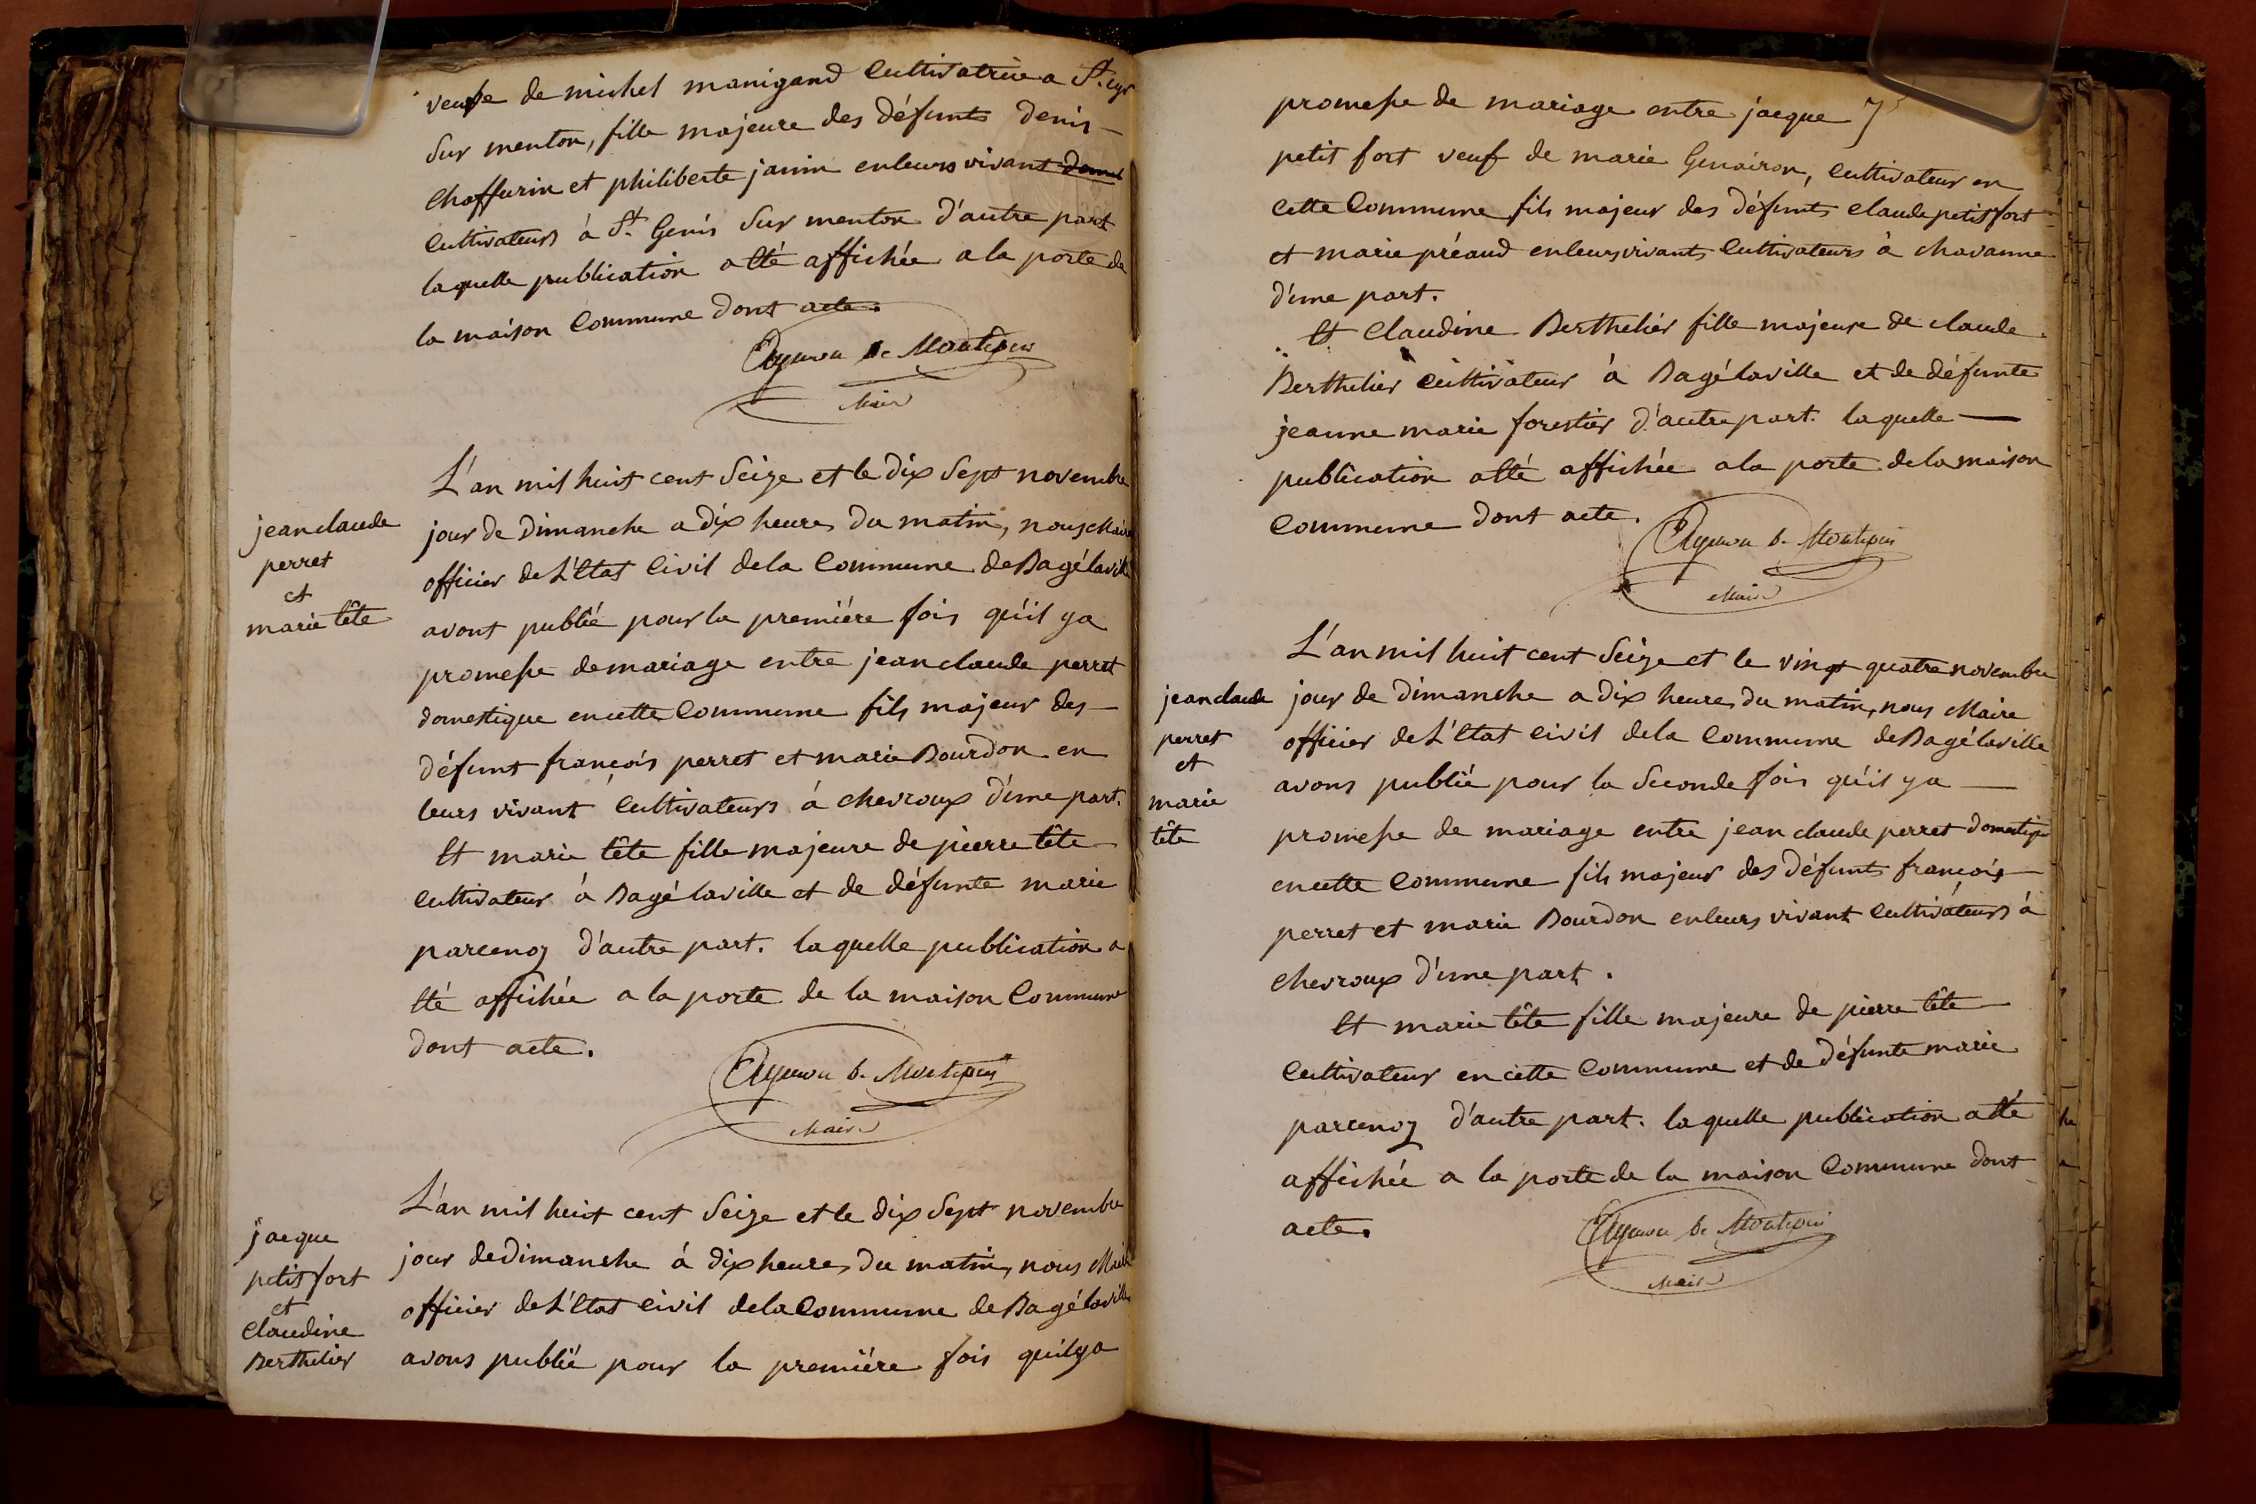 veuve de michel manigand Cultivatrice a St. cyr
Sur menton, fille majeure des défunts denis
Choffurin et philiberte janin enleurs vivant
Cultivateurs à St. Genis Sur menton d'autre part
laquelle publication a été affichée a la porte de
la maison Commune dont acte.
Mair
jean claude
perret
et
marie tête
L'an mil huit cent Seize et le dix Sept novembre
jour de Dimanche a dix heures du matin, nous Maire
officier de L'Etat Civil dela Commune de Bagé laville
avont publié pour la premiére fois qu'il ya
promesse de mariage entre jean claude perret
domestique encette Commune fils majeur des
défunt françois perret et marie Bourdon en
leurs vivant Cultivateurs à chevroux d'une part.
Et marie tête fille majeure de pierre tête
Cultivateur à Bagé laville et de défunte marie
parcenoz d'autre part. laquelle publication a
été affichée a la porte de la maison Commune
dont acte.
Maire
jacque
petit fort
et
Claudine
Berthelier
L'an mil huit cent Seize et le dix Sept novembre
jour de dimanche à dix heures du matin, nous Maire
officier de L'Etat Civil dela Commune de Bagé laville
avons publié pour la premiére fois quil ya
promesse de mariage entre jacque
petit fort veuf de marie Genairon, Cultivateur en
cette Commune fils majeur des défunts claude petit fort
et marie préaud enleurs vivants Cultivateurs à chavanne
d'une part.
Et Claudine Berthelier fille majeure de claude
Berthelier Cultivateur à Bagé laville et de défunte
jeanne marie forestier d'autre part. laquelle
publication a été affichée a la porte dela maison
Commune dont acte.
Maire
jean claude
perret
et
marie
tête
L'an mil huit cent Seize et le vingt quatre novembre
jour de Dimanche a dix heures du matin, nous Maire
officier de L'Etat Civil dela Commune de Bagé laville
avons publié pour la Seconde fois qu'il ya
promesse de mariage entre jean claude perret domestique
encette Commune fils majeur des défunts françois
perret et marie Bourdon enleurs vivant Cultivateurs à
chevroux d'une part.
Et marie tête fille majeure de pierre tête
Cultivateur en cette Commune et de défunte marie
parcenoz d'autre part. laquelle publication a été
affichée a la porte de la maison Commune dont
acte.
Maire